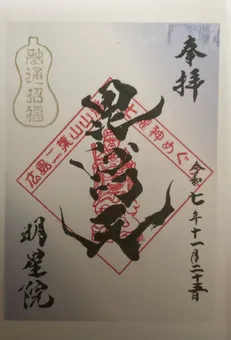 奉拝
令和七年十一月二十五日
毘沙門天
広島二葉山山
七福神めぐ
融通招福
明星院